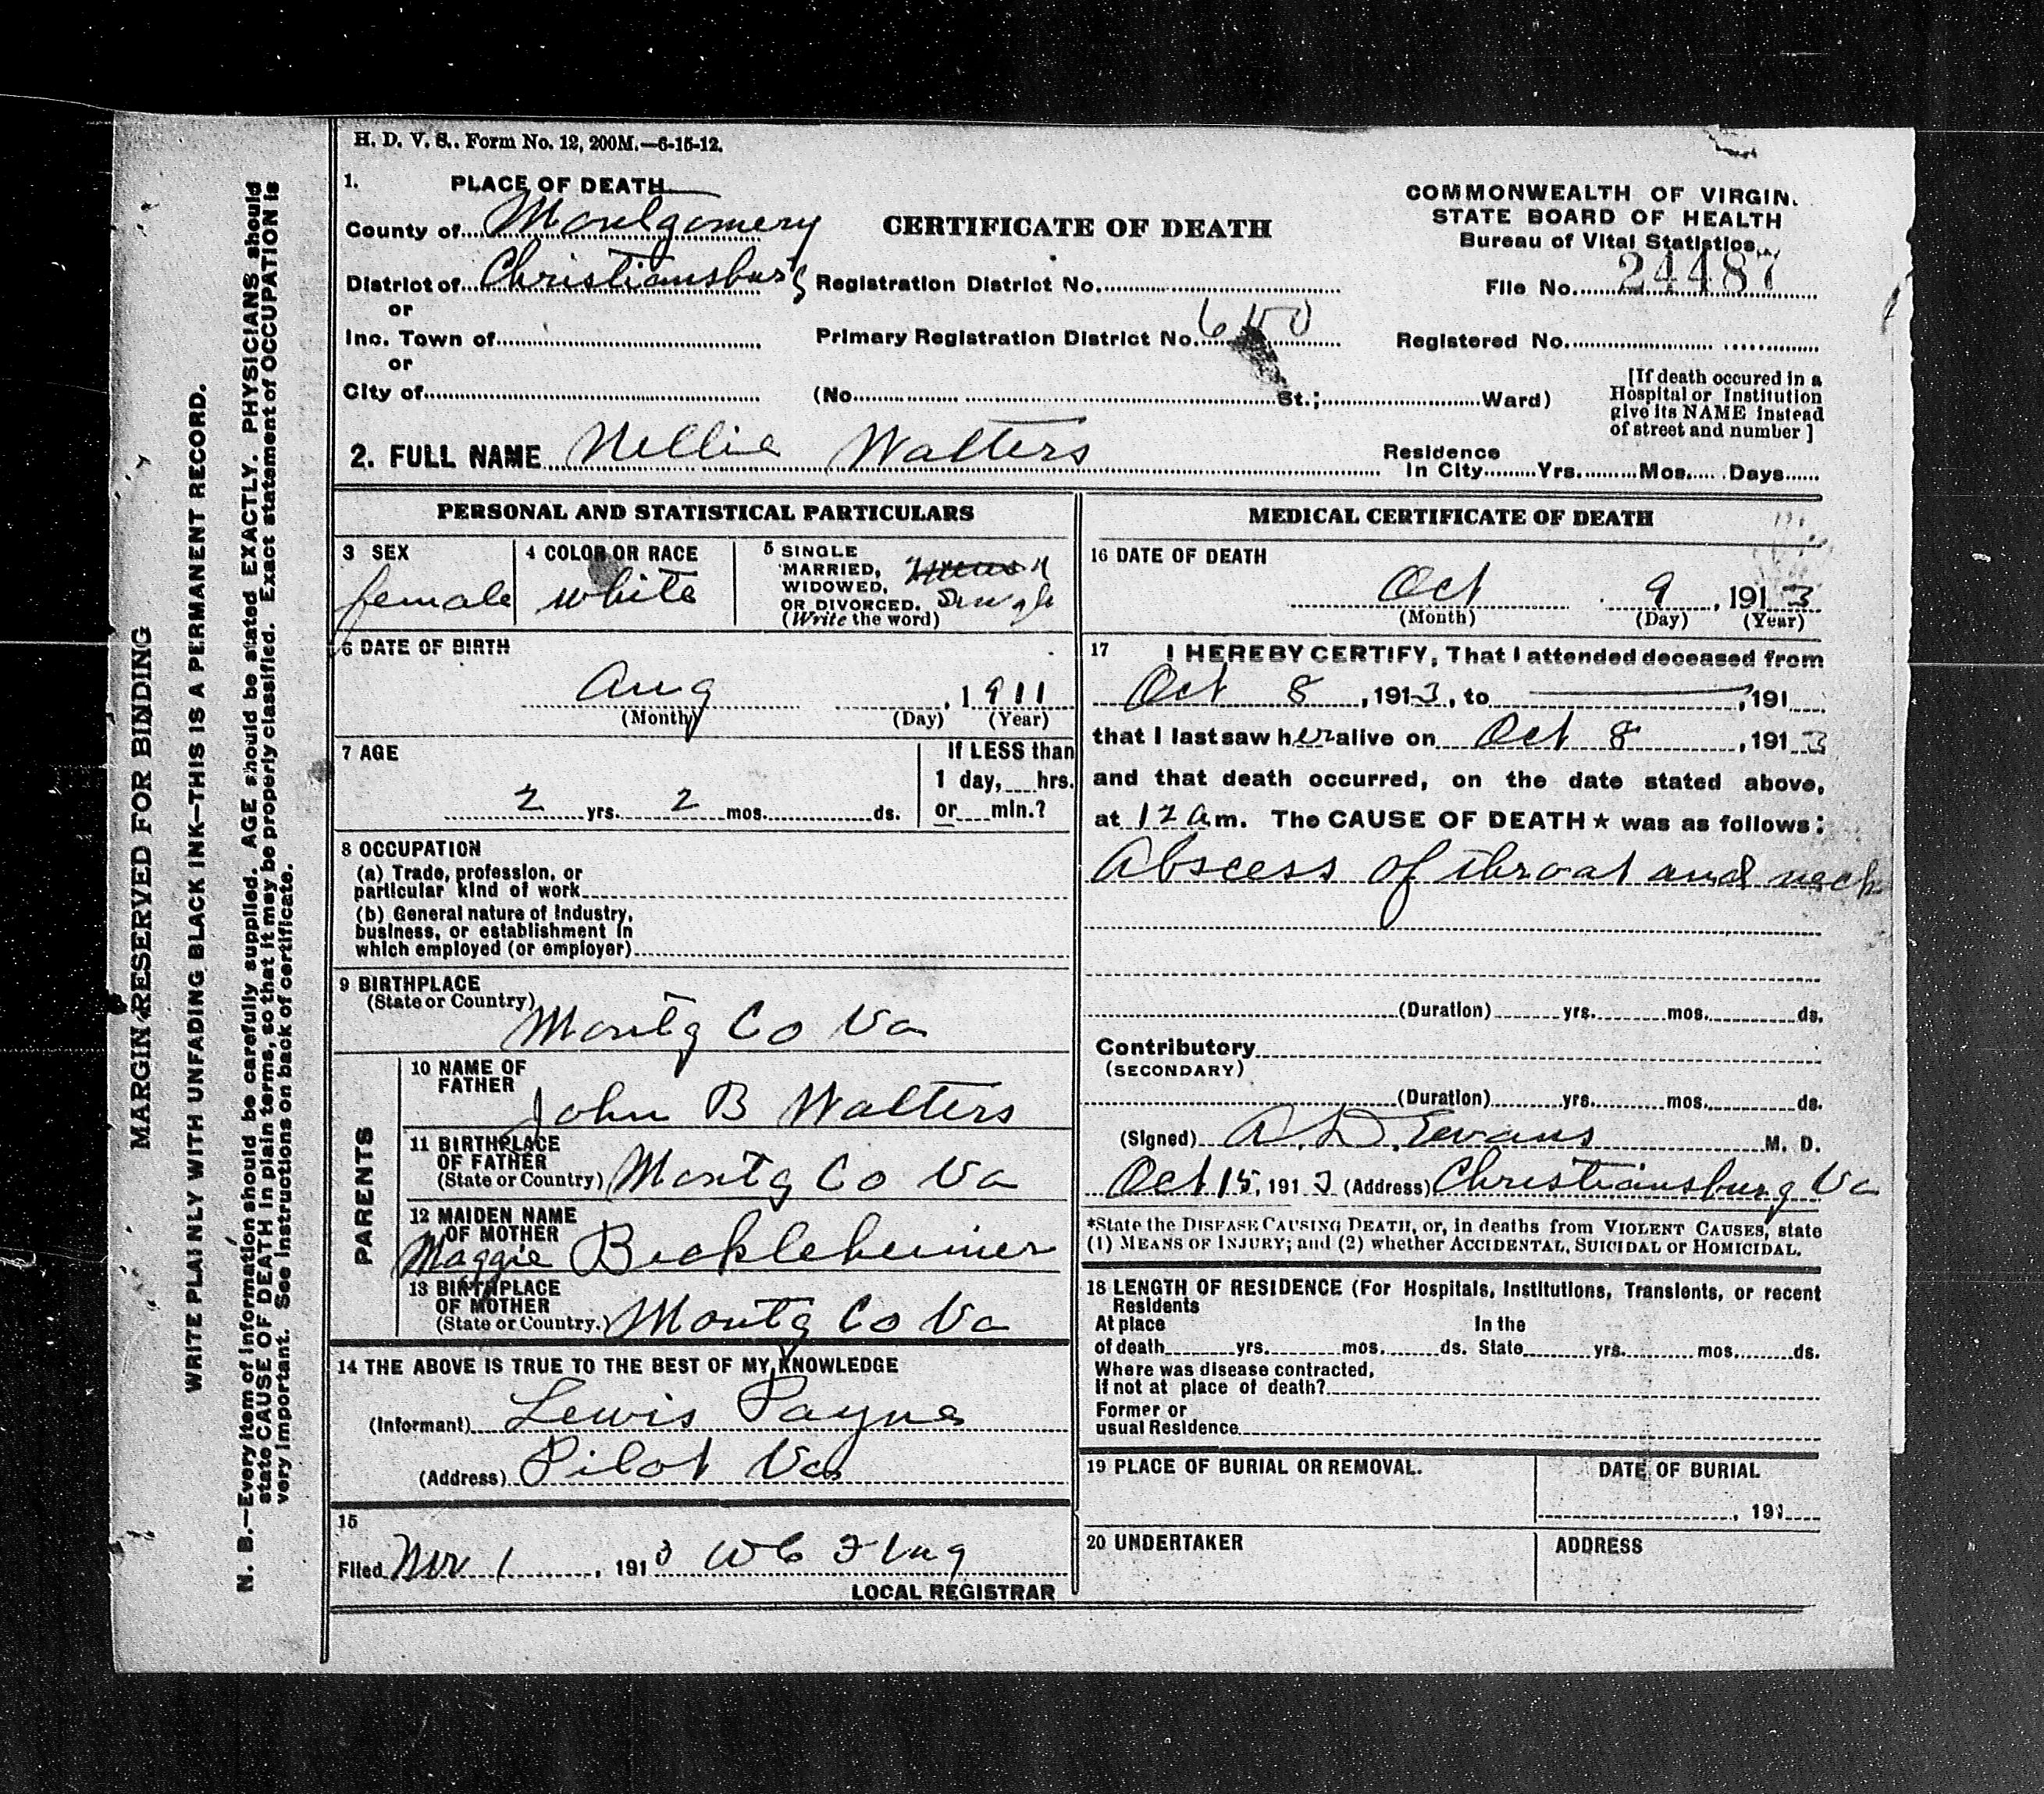 H. D. V. S.. Form No. 12, 200M.—6-15-12.
1. PLACE OF DEATH
County of Montgomery
District of Christiansburg
or
Inc. Town of
or
City of
CERTIFICATE OF DEATH
Registration District No.
Primary Registration District No.
(No. St.; Ward)
COMMONWEALTH OF VIRGIN.
STATE BOARD OF HEALTH
Bureau of Vital Statistics
File No. 24487
Registered No.
[If death occured in a
Hospital or Institution
give its NAME instead
of street and number ]
2. FULL NAME Nellie Walters
Residence
In City Yrs. Mos. Days
PERSONAL AND STATISTICAL PARTICULARS
3 SEX
female
4 COLOR OR RACE
white
5 SINGLE
MARRIED,
WIDOWED,
OR DIVORCED.
(Write the word)
Single
6 DATE OF BIRTH
Aug , 1911
(Month) (Day) (Year)
7 AGE
2 yrs. 2 mos. ds.
If LESS than
1 day, hrs.
or min.?
8 OCCUPATION
(a) Trade, profession, or
particular kind of work
(b) General nature of Industry,
business, or establishment in
which employed (or employer)
9 BIRTHPLACE
(State or Country)
Montg Co Va
PARENTS
10 NAME OF
FATHER
John B Walters
11 BIRTHPLACE
OF FATHER
(State or Country) Montg Co Va
12 MAIDEN NAME
OF MOTHER
Maggie Beckleheimer
13 BIRTHPLACE
OF MOTHER
(State or Country.) Montg Co Va
14 THE ABOVE IS TRUE TO THE BEST OF MY KNOWLEDGE
(Informant) Lewis Payne
(Address) Pilot Va
15
Filed Nov 1, 1913 W C Flug
LOCAL REGISTRAR
MEDICAL CERTIFICATE OF DEATH
16 DATE OF DEATH
Oct 9, 1913
(Month) (Day) (Year)
17 I HEREBY CERTIFY, That I attended deceased from
Oct 8, 1913, to , 191
that I last saw her alive on Oct 8, 1913
and that death occurred, on the date stated above,
at 12 a m. The CAUSE OF DEATH * was as follows:
Abscess of throat and neck
(Duration) yrs. mos. ds.
Contributory
(SECONDARY)
(Duration) yrs. mos. ds.
(Signed) A. D. Evans M. D.
Oct 15, 1913 (Address) Christiansburg Va
*State the DISEASE CAUSING DEATH, or, in deaths from VIOLENT CAUSES, state
(1) MEANS OF INJURY; and (2) whether ACCIDENTAL, SUICIDAL or HOMICIDAL.
18 LENGTH OF RESIDENCE (For Hospitals, Institutions, Transients, or recent
Residents
At place In the
of death yrs. mos. ds. State yrs. mos. ds.
Where was disease contracted,
If not at place of death?
Former or
usual Residence
19 PLACE OF BURIAL OR REMOVAL.
DATE OF BURIAL
, 191
20 UNDERTAKER
ADDRESS
MARGIN RESERVED FOR BINDING
WRITE PLAINLY WITH UNFADING BLACK INK—THIS IS A PERMANENT RECORD.
N. B.—Every item of information should be carefully supplied. AGE should be stated EXACTLY. PHYSICIANS should
state CAUSE OF DEATH in plain terms, so that it may be properly classified. Exact statement of OCCUPATION is
very important. See instructions on back of certificate.